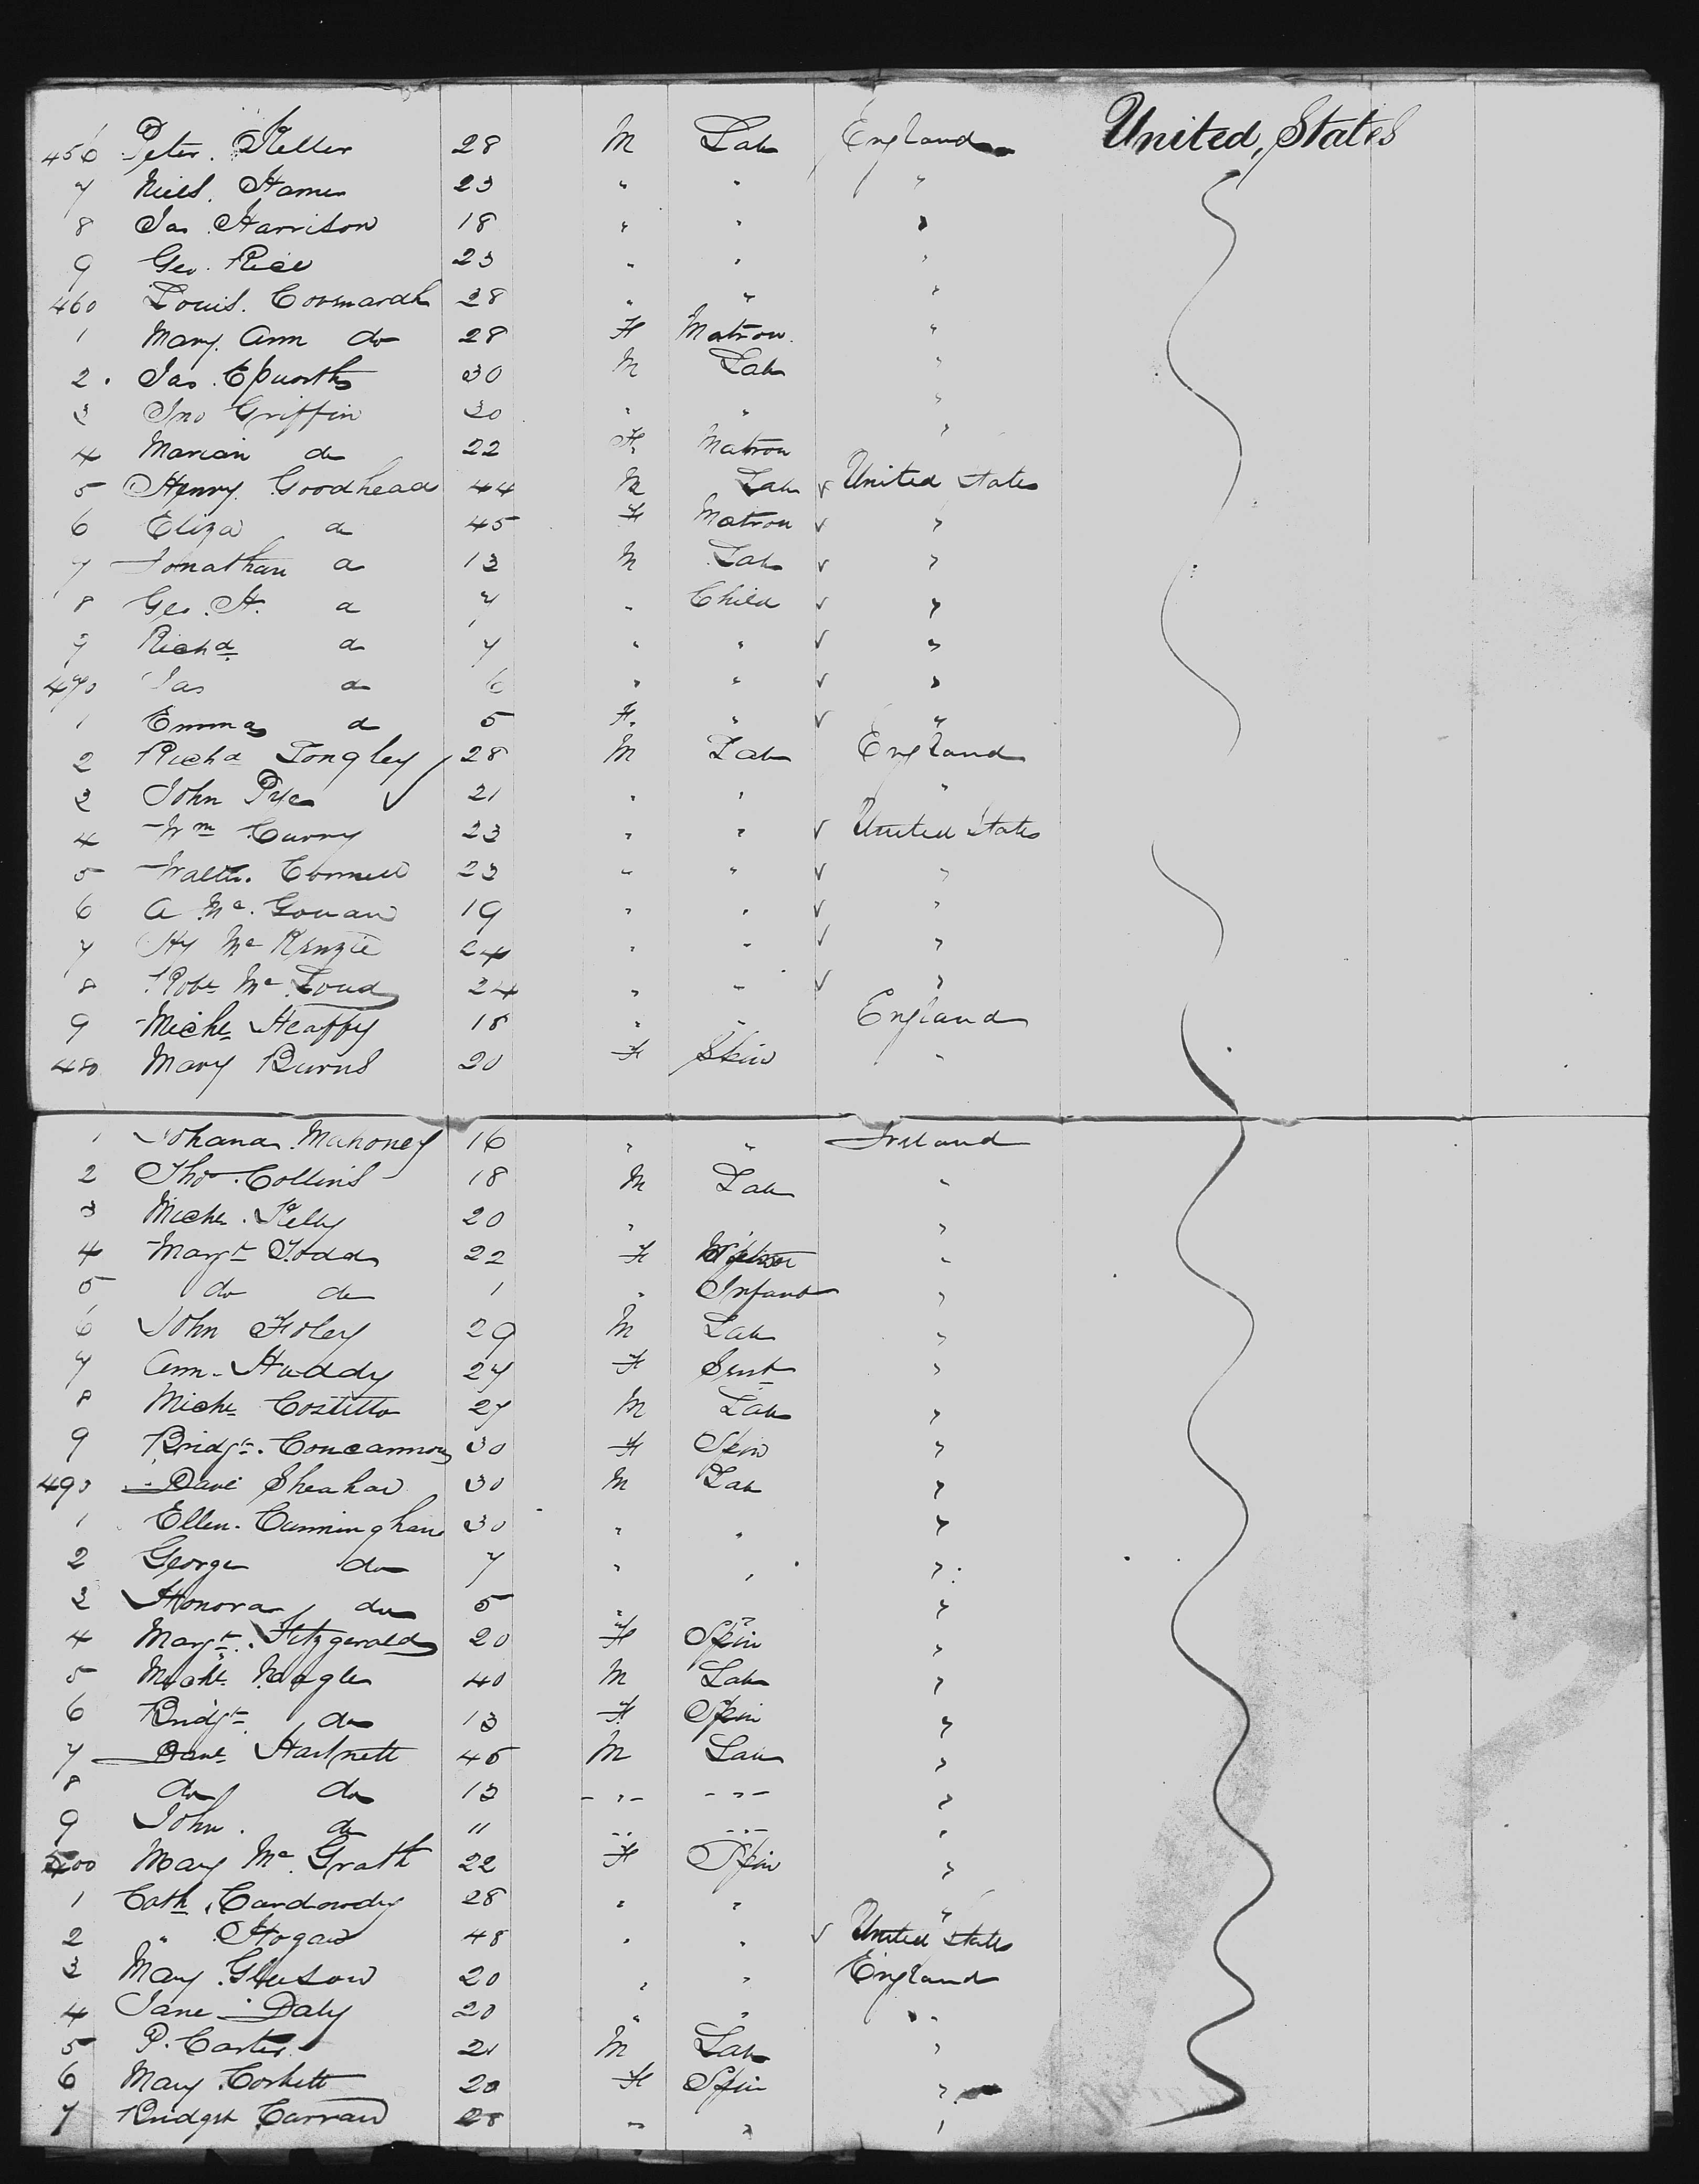 456 Peter Keller 28 M Lab England United States
7 Niels. Hamer 23 " " "
8 Jas Harrison 18 " " "
9 Geo. Rice 23 " " "
460 Louis. 28 " " "
1 Mary Ann do 28 F Matron "
2 Jas. Epworth 30 M Lab "
3 Jno Griffin 30 " " "
4 Marian do 22 F Matron "
5 Henry Goodhead 44 M Lab ✓ United States
6 Eliza do 45 F Matron ✓ "
7 Jonathan do 13 M Lab ✓ "
8 Geo. H. do 7 " Child ✓ "
9 Richd do 7 " " ✓ "
470 Jas do 6 " " ✓ "
1 Emma do 5 F. " ✓ "
2 Richd Longley ✓ 28 M Lab England
3 John Pye ✓ 21 " " "
4 Wm Curry 23 " " ✓ United States
5 Walter. 23 " " ✓ "
6 A Mc. Gowan 19 " " ✓ "
7 Hy Mc Kenzie 24 " " ✓ "
8 Robt Mc Loud 24 " " ✓ "
9 Michl Heaffy 18 " " England
480 Mary Burns 20 F Spin "
1 Johana Mahoney 16 " " Ireland
2 Thos. Collins 18 M Lab "
3 Michl. Kelly 20 " "
4 Margt Todd 22 F "
5 do do 1 " Infant "
6 John Foley 29 M Lab "
7 Ann Huddy 27 F Servt "
8 Michl Costello 27 M Lab "
9 Bridgt. Concannon 30 F Spin "
490 Danl Sheahan 30 M Lab "
1 Ellen Cunningham 30 " " "
2 George do 7 " " "
3 Honora do 5 " " "
4 Margt. Fitzgerald 20 F Spin "
5 Michl Nagle 40 M Lab "
6 Bridgt do 13 F Spin "
7 Danl Hartnett 45 M Lab "
8 do do 13 " " "
9 John do 11 " " "
500 Mary Mc Grath 22 F Spin "
1 Cath. 28 " " "
2 " Hogan 48 " " ✓ United States
3 Mary Gleeson 20 " " England
4 Jane Daly 20 " " "
5 P. Carter 21 M Lab "
6 Mary Corbett 20 F Spin "
7 Bridget Curran 28 " " "